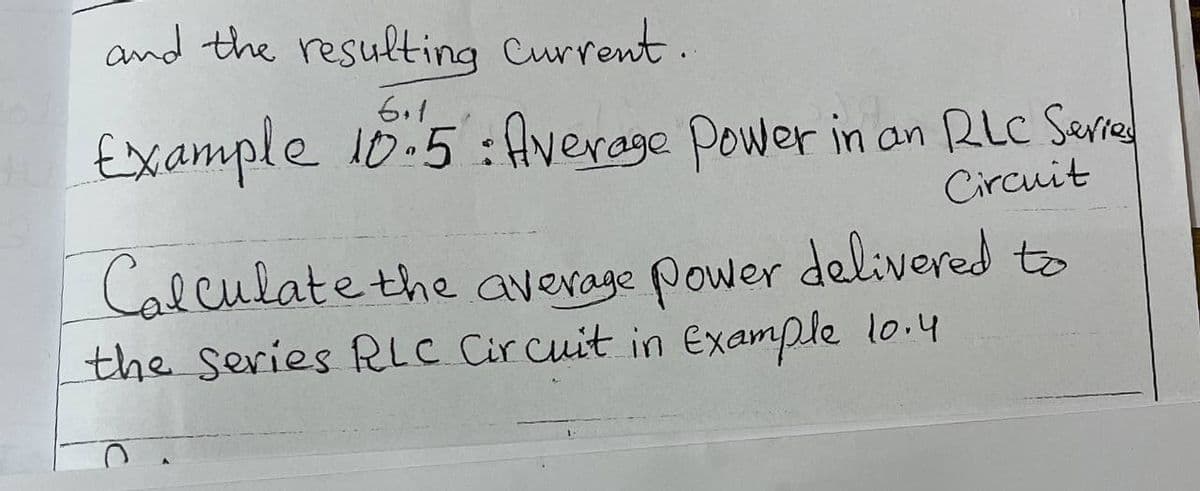 and the resulting current.
6.1
Example 10.5 : Average Power in an RLC Series
Circuit
Calculate the average power delivered to
the series RLC Circuit in Example 10.4